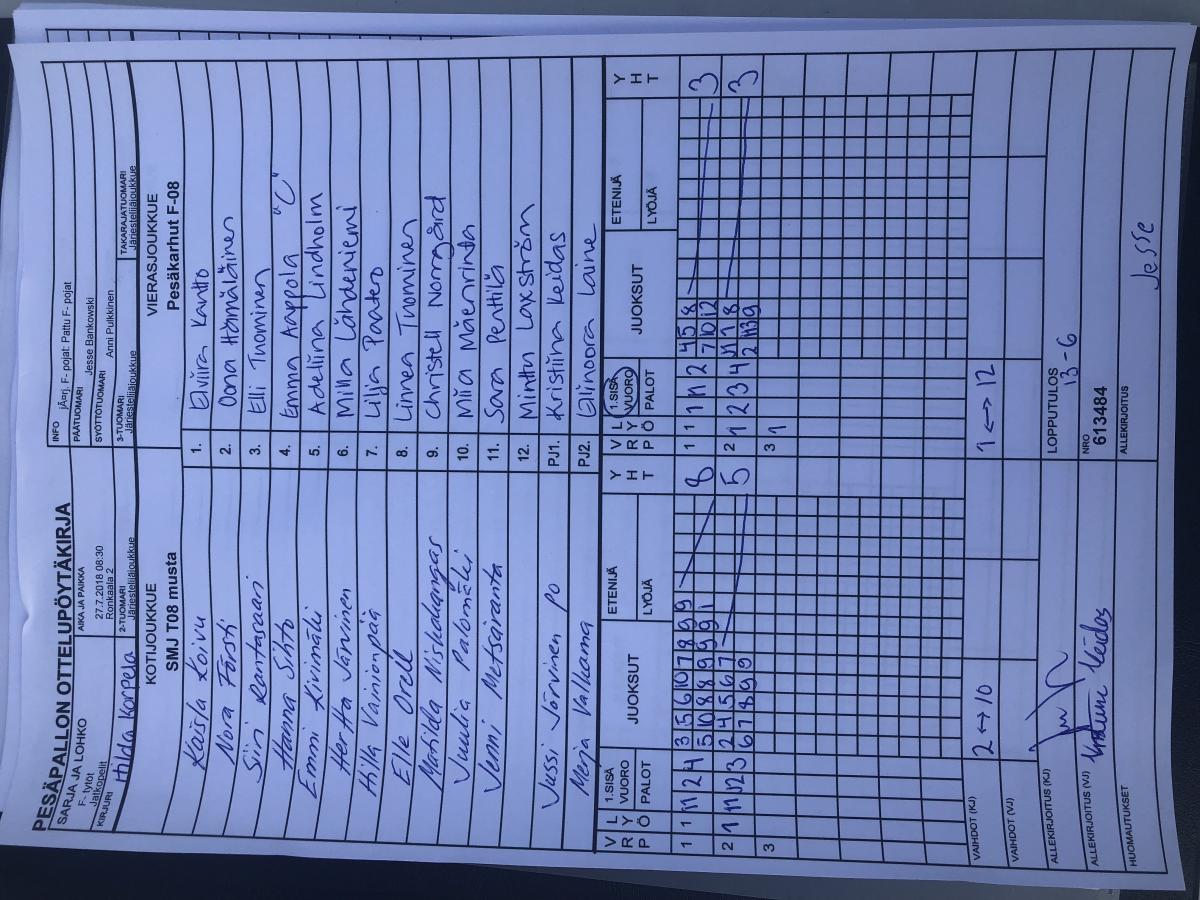 PESÄPALLON OTTELUPÖYTÄKIRJA
SARJA JA LOHKO
F- tytöt
Jatkopelit
AIKA JA PAIKKA
27.7.2018 08:30
Ronkaala 2
INFO jÄ¤rj. F- pojat: Pattu F- pojat
PÄÄTUOMARI Jesse Bankowski
SYÖTTÖTUOMARI Anni Pulkkinen
KIRJURI Hilda Korpela
2-TUOMARI
Järjestelijäjoukkue
3-TUOMARI
Järjestelijäjoukkue
TAKARAJATUOMARI
Järjestelijäjoukkue
KOTIJOUKKUE
SMJ T08 musta
VIERASJOUKKUE
Pesäkarhut F-08
Kaisla Koivu 1. Elviira Kantto
Nora Försti 2. Oona Hämäläinen
Siiri Rantasaari 3. Elli Tuominen
Hanna Sihto 4. Emma Aappola "C"
Emmi Kivimäki 5. Adeliina Lindholm
Hertta Järvinen 6. Milla Lähdeniemi
Hilla Vainionpää 7. Lilja Paatero
Elle Orell 8. Linnea Tuominen
Matilda Niskakangas 9. Christell Norrgård
Juulia Palomäki 10. Miia Mäenrinta
Venni Metsäranta 11. Sara Penttilä
12. Minttu Laxström
Jussi Järvinen PO PJ1. Kristiina Keidas
Merja Valkama PJ2. Ellinoora Laine
V R P L Y Ö 1.SISÄ VUORO PALOT JUOKSUT ETENIJÄ LYÖJÄ Y H T
V R P L Y Ö 1.SISÄ VUORO PALOT JUOKSUT ETENIJÄ LYÖJÄ Y H T
1 1 11 2 4 3 5 6 10 7 8 9 9 8
5 10 8 8 9 9 9 1
1 1 1 11 2 4 5 8 3
7 10 12
2 1 11 11 2 3 2 4 5 6 7 5
6 7 8 9 9
2 1 1 2 3 4 11 11 8 3
2 1 13 9
3
3 1
VAIHDOT (KJ) 2 ↔ 10
1 ↔ 12
VAIHDOT (VJ)
ALLEKIRJOITUS (KJ)
LOPPUTULOS
13 - 6
ALLEKIRJOITUS (VJ) Keidas
NRO
613484
HUOMAUTUKSET
ALLEKIRJOITUS
Jesse